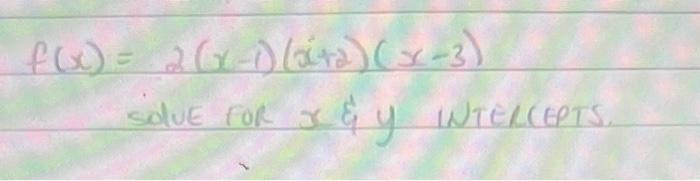 f(x) = 2(x-1)(x+2)(x-3)
SOLVE FOR x & y INTERCEPTS.